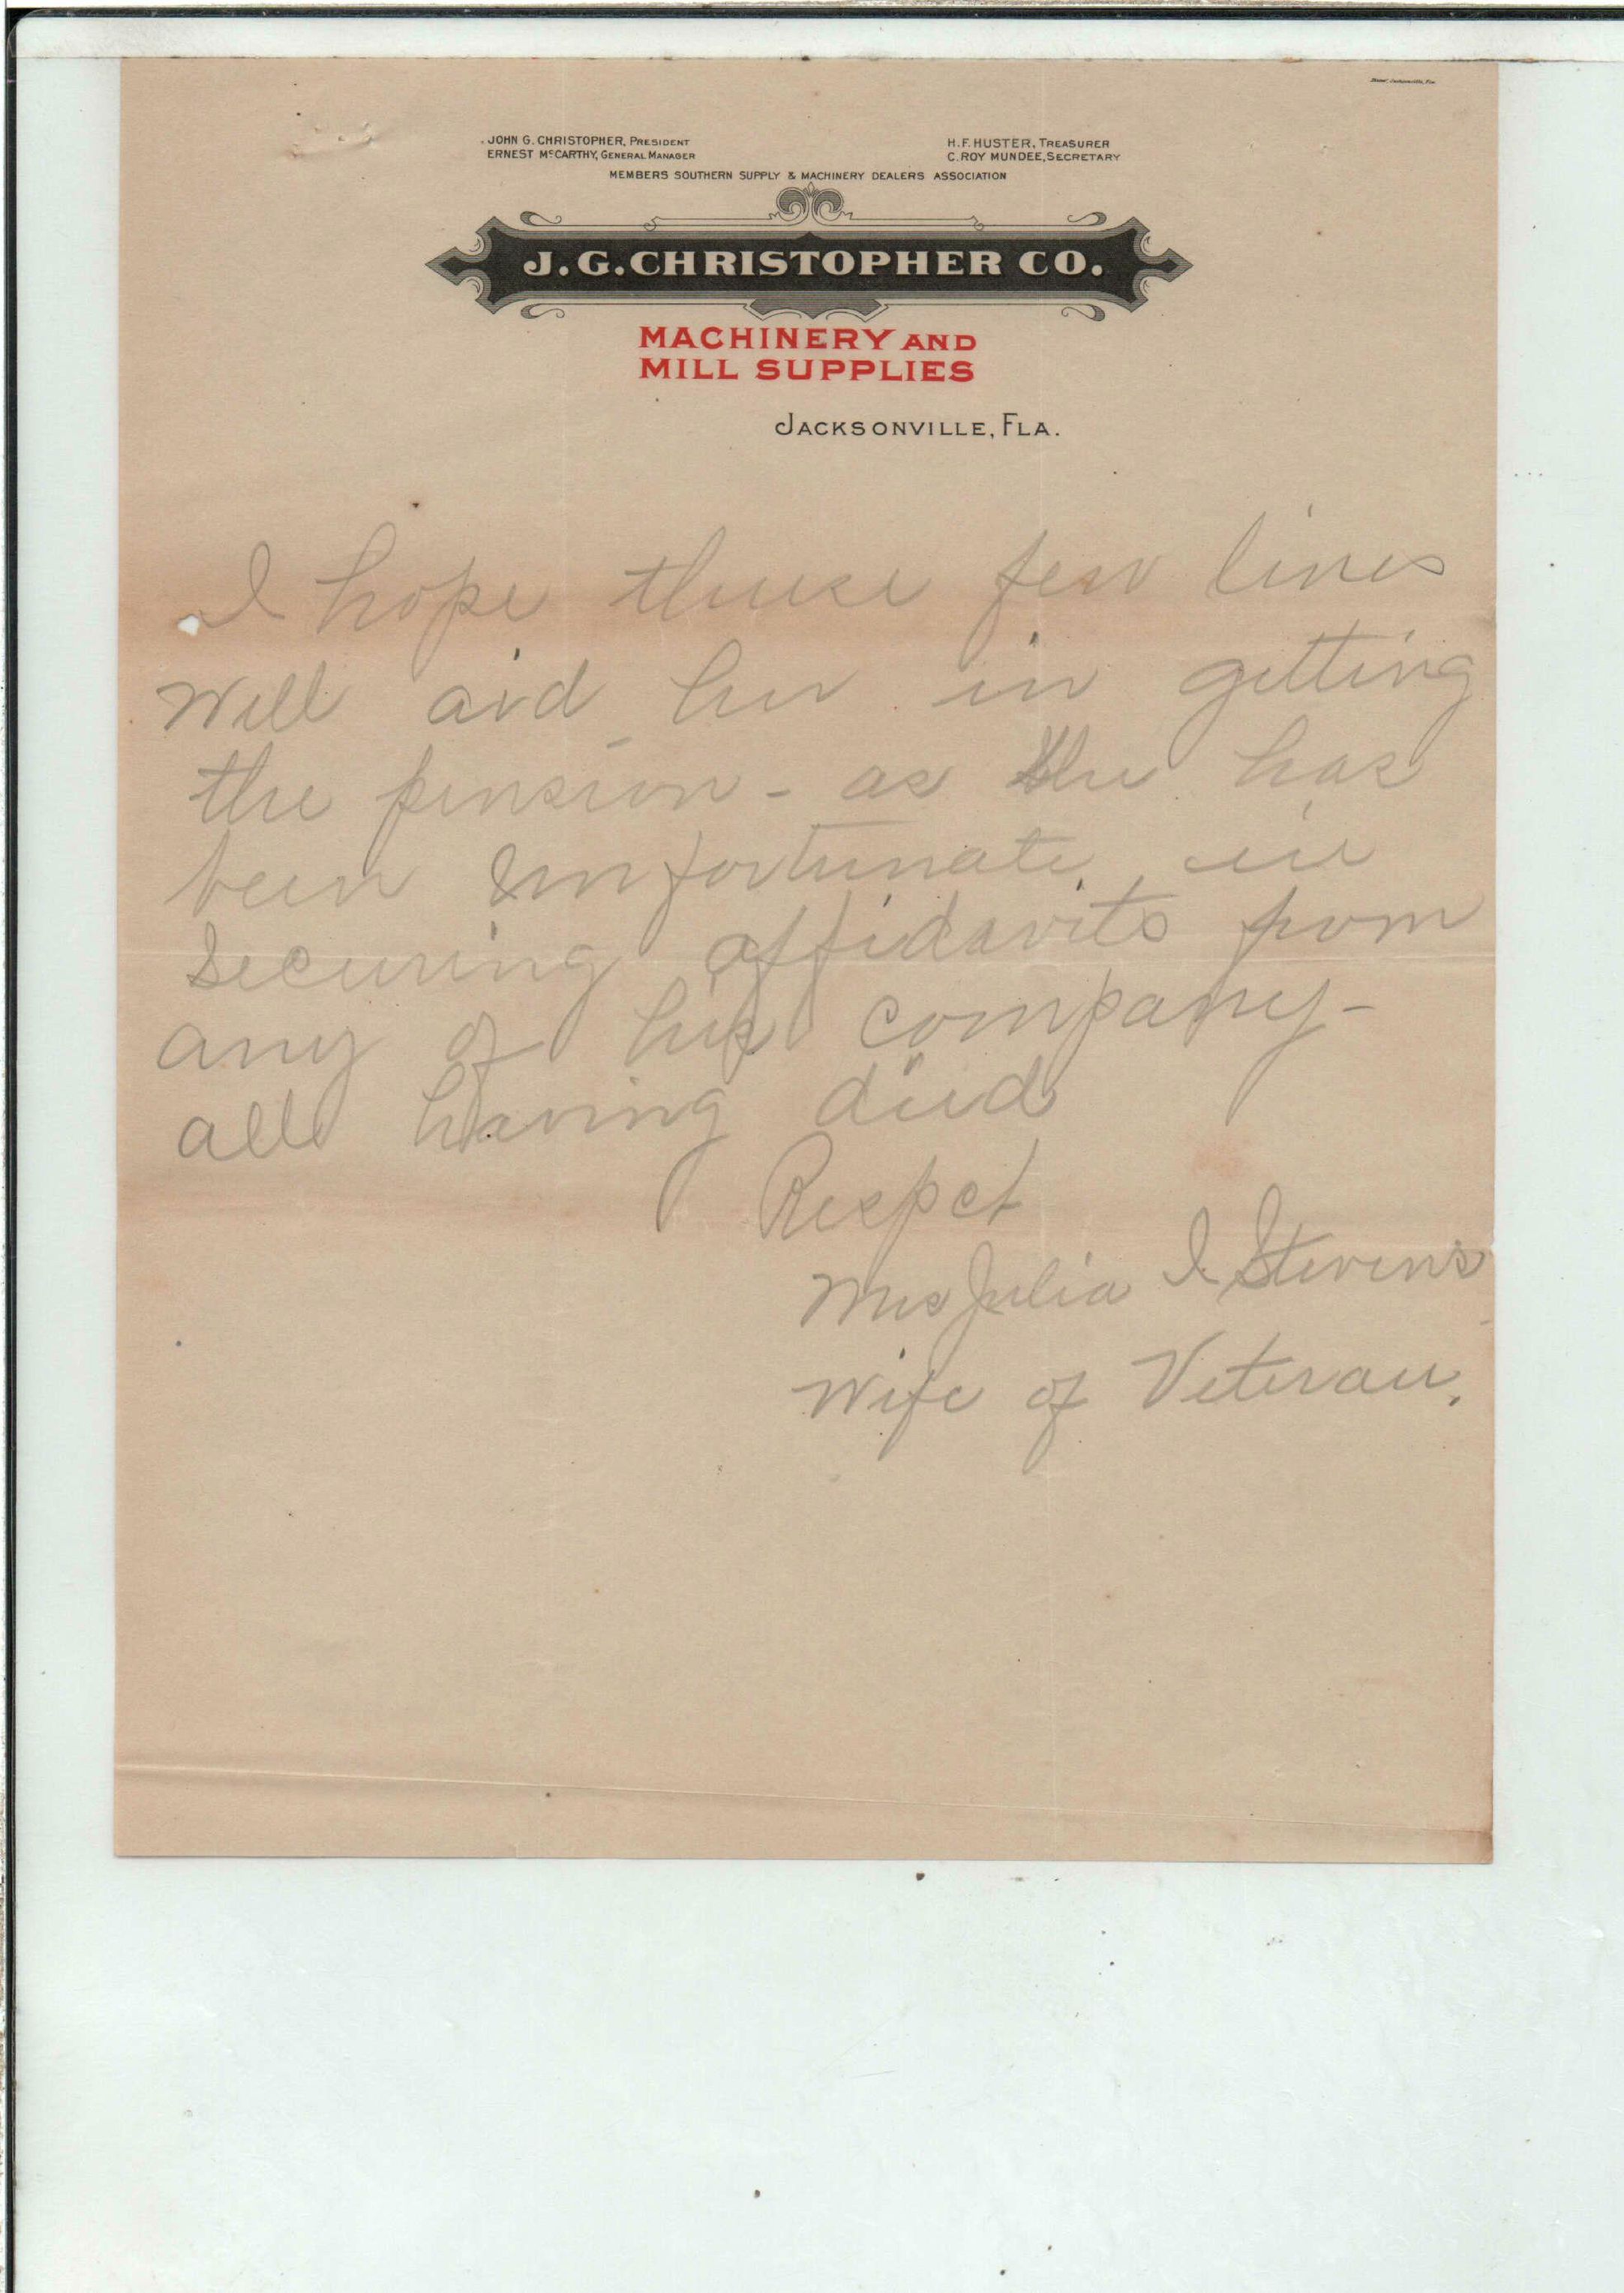 JOHN G. CHRISTOPHER, PRESIDENT
ERNEST McCARTHY, GENERAL MANAGER
H.F. HUSTER, TREASURER
C. ROY MUNDEE, SECRETARY
MEMBERS SOUTHERN SUPPLY & MACHINERY DEALERS ASSOCIATION
J. G. CHRISTOPHER CO.
MACHINERY AND
MILL SUPPLIES
JACKSONVILLE, FLA.
I hope these few lines
will aid her in getting
the pension - as she has
been unfortunate in
securing affidavits from
any of his company -
all having died
Respct
Mrs Julia I. Stevens
Wife of Veteran.